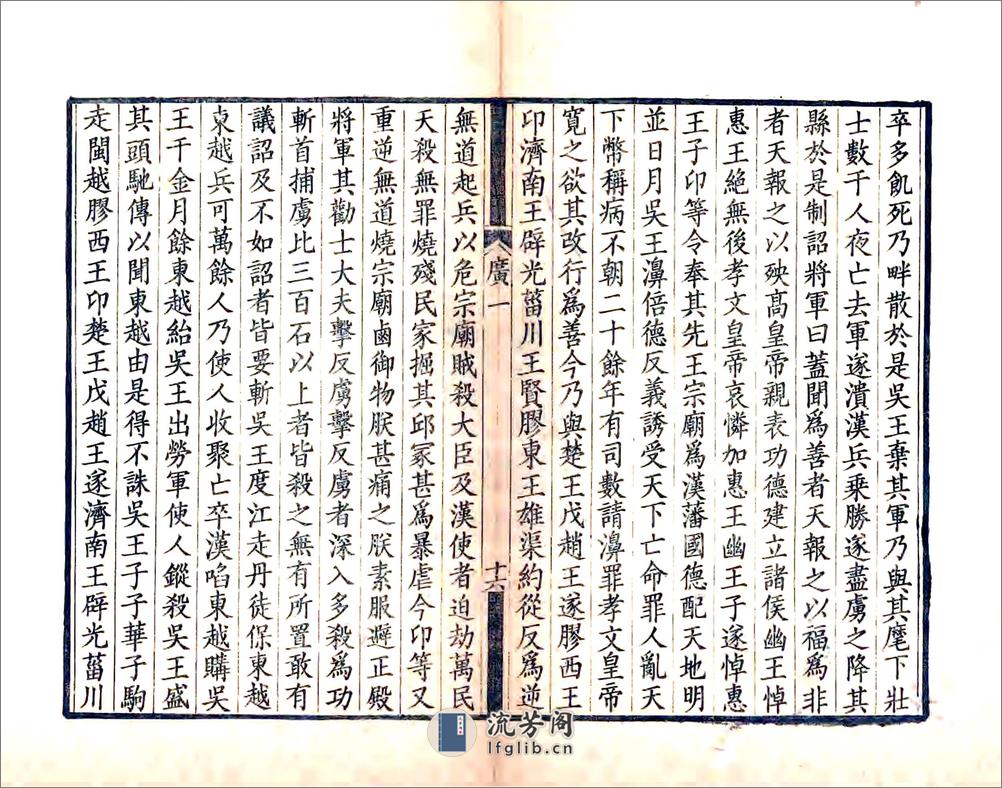 卒多飢死乃畔散於是吳王棄其軍乃與其麾下壯
士數千人夜亡去軍遂潰漢兵乘勝遂盡虜之降其
縣於是制詔將軍曰蓋聞爲善者天報之以福爲非
者天報之以殃高皇帝親表功德建立諸侯幽王悼
惠王絶無後孝文皇帝哀憐加惠王幽王子遂悼惠
王子卬等令奉其先王宗廟爲漢藩國德配天地明
並日月吳王濞倍德反義誘受天下亡命罪人亂天
下幣稱病不朝二十餘年有司數請濞罪孝文皇帝
寬之欲其改行爲善今乃與楚王戊趙王遂膠西王
卬濟南王辟光菑川王賢膠東王雄渠約從反爲逆
廣一
十六
無道起兵以危宗廟賊殺大臣及漢使者迫劫萬民
夭殺無罪燒殘民家掘其邱冢甚爲暴虐今卬等又
重逆無道燒宗廟鹵御物朕甚痛之朕素服避正殿
將軍其勸士大夫擊反虜擊反虜者深入多殺爲功
斬首捕虜比三百石以上者皆殺之無有所置敢有
議詔及不如詔者皆要斬吳王度江走丹徒保東越
東越兵可萬餘人乃使人收聚亡卒漢啗東越購吳
王千金月餘東越紿吳王出勞軍使人鏦殺吳王盛
其頭馳傳以聞東越由是得不誅吳王子子華子駒
走閩越膠西王卬楚王戊趙王遂濟南王辟光菑川
流芳阁
lfglib.cn